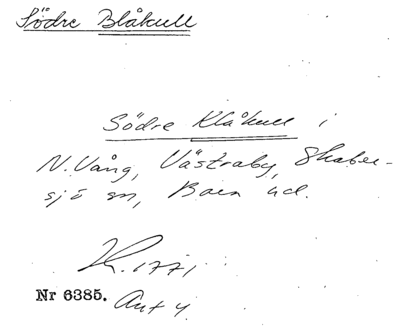 Södre Blåkull
Södre Klåkull i
N. Vång, Västraby, Skaber-
sjö sn, Bara hd.
K. 1771
Nr 6385. Ant 4